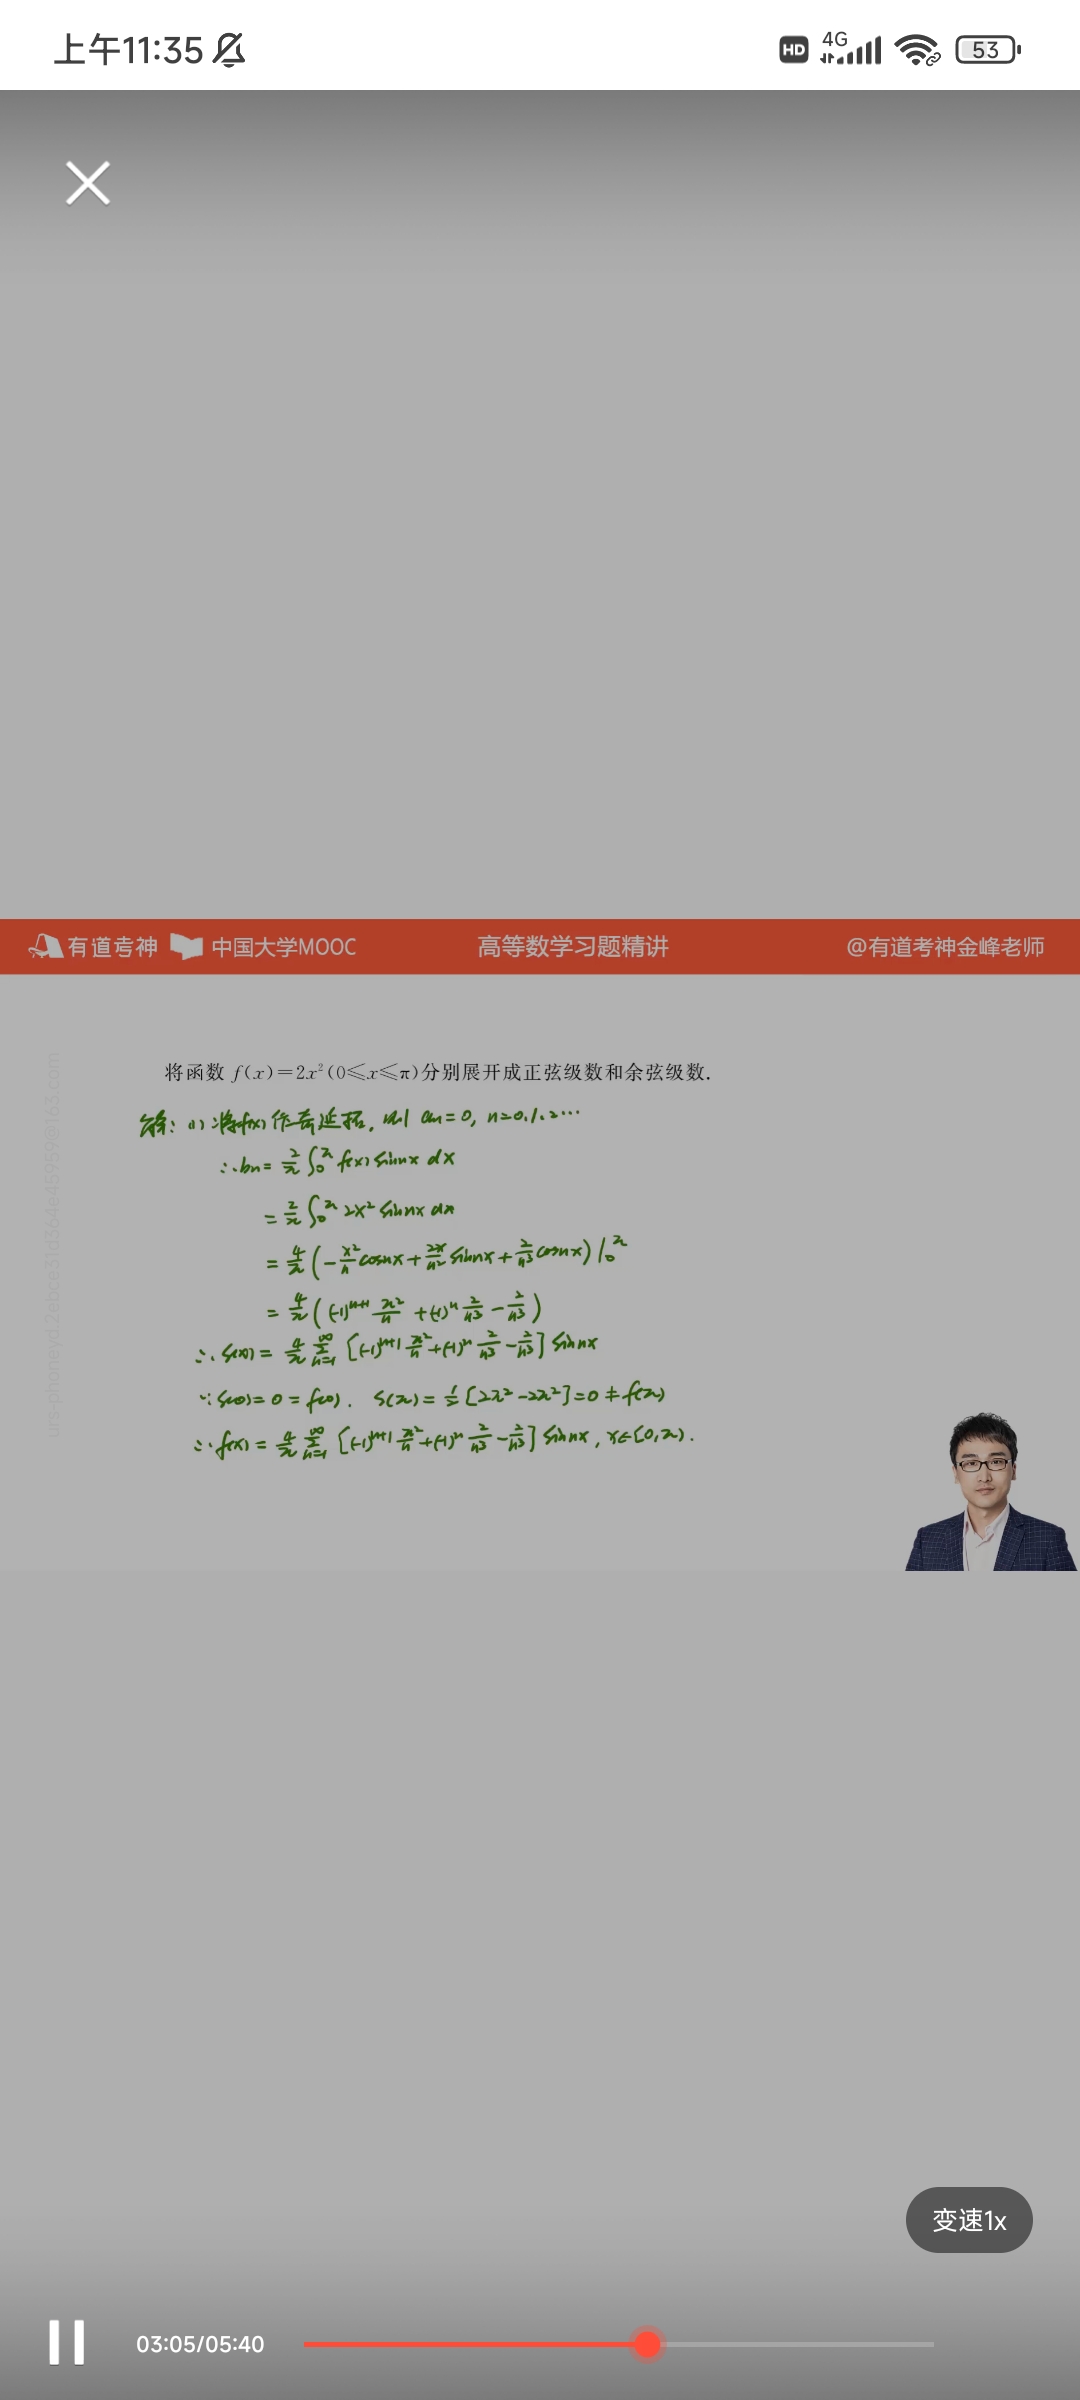 上午11:35 HD 4G 53
有道考神 中国大学MOOC 高等数学习题精讲 @有道考神金峰老师
将函数 f(x)=2x²(0≤x≤π)分别展开成正弦级数和余弦级数.
解: (1) 将f(x)作奇延拓, 则 an=0, n=0.1.2…
∴bn= 2/π ∫₀^π f(x) sinnx dx
= 2/π ∫₀^π 2x² sinnx dx
= 4/π (-x²/n cosnx + 2x/n² sinnx + 2/n³ cosnx) |₀^π
= 4/π ( (-1)^(n+1) π²/n + (-1)^n 2/n³ - 2/n³ )
∴ S(x) = 4/π ∑_(n=1)^∞ [(-1)^(n+1) π²/n + (-1)^n 2/n³ - 2/n³] sinnx
∵ S(0)=0=f(0). S(π)= 1/2 [2π²-2π²]=0≠f(π)
∴ f(x) = 4/π ∑_(n=1)^∞ [(-1)^(n+1) π²/n + (-1)^n 2/n³ - 2/n³] sinnx, x∈[0,π).
变速1x
03:05/05:40